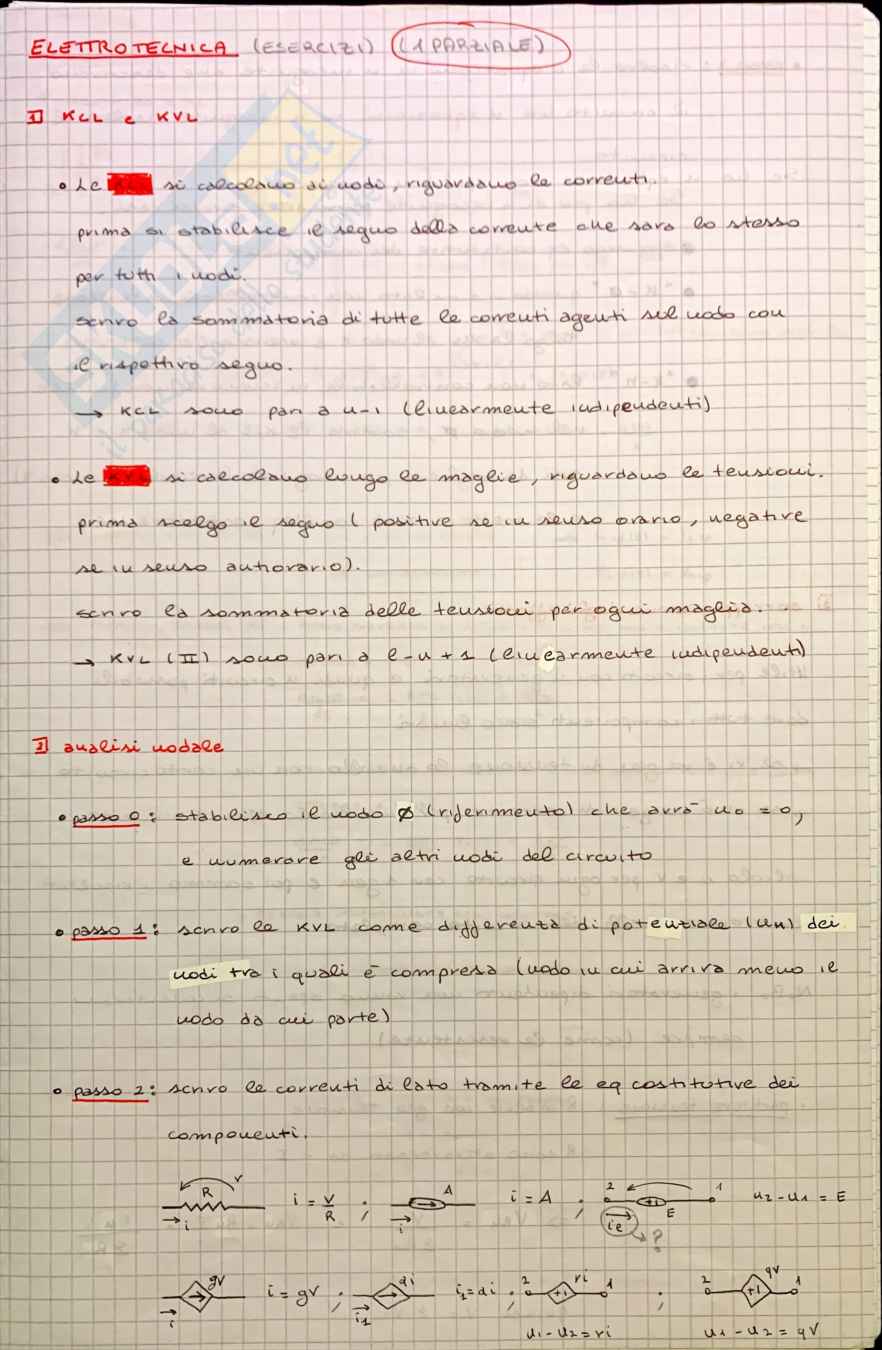 ELETTROTECNICA (ESERCIZI) (1 PARZIALE)
1] KCL e KVL
• Le KCL si calcolano ai nodi, riguardano le correnti.
prima si stabilisce il segno della corrente che sarà lo stesso
per tutti i nodi.
scrivo la sommatoria di tutte le correnti agenti sul nodo con
il rispettivo segno.
→ KCL sono pari a n-1 (linearmente indipendenti)
• Le KVL si calcolano lungo le maglie, riguardano le tensioni.
prima scelgo il segno (positive se in senso orario, negative
se in senso antiorario).
scrivo la sommatoria delle tensioni per ogni maglia.
→ KVL (II) sono pari a l-n+1 (linearmente indipendenti)
2] analisi nodale
• passo 0: stabilisco il nodo Ø (riferimento) che avrà u0 = 0,
e numerare gli altri nodi del circuito
• passo 1: scrivo le KVL come differenza di potenziale (un) dei
nodi tra i quali è compresa (nodo in cui arriva meno il
nodo da cui parte)
• passo 2: scrivo le correnti di lato tramite le eq costitutive dei
componenti.
R v i i = v/R ; A i i = A ; 2 1 E ie ? u2 - u1 = E
gv i i = gv ; αi i1 i1 = αi ; 2 +1 ri 1 ; 2 +1 qv 1
u1 - u2 = ri u1 - u2 = qv
SKUOLA.net
il paradiso dello studente